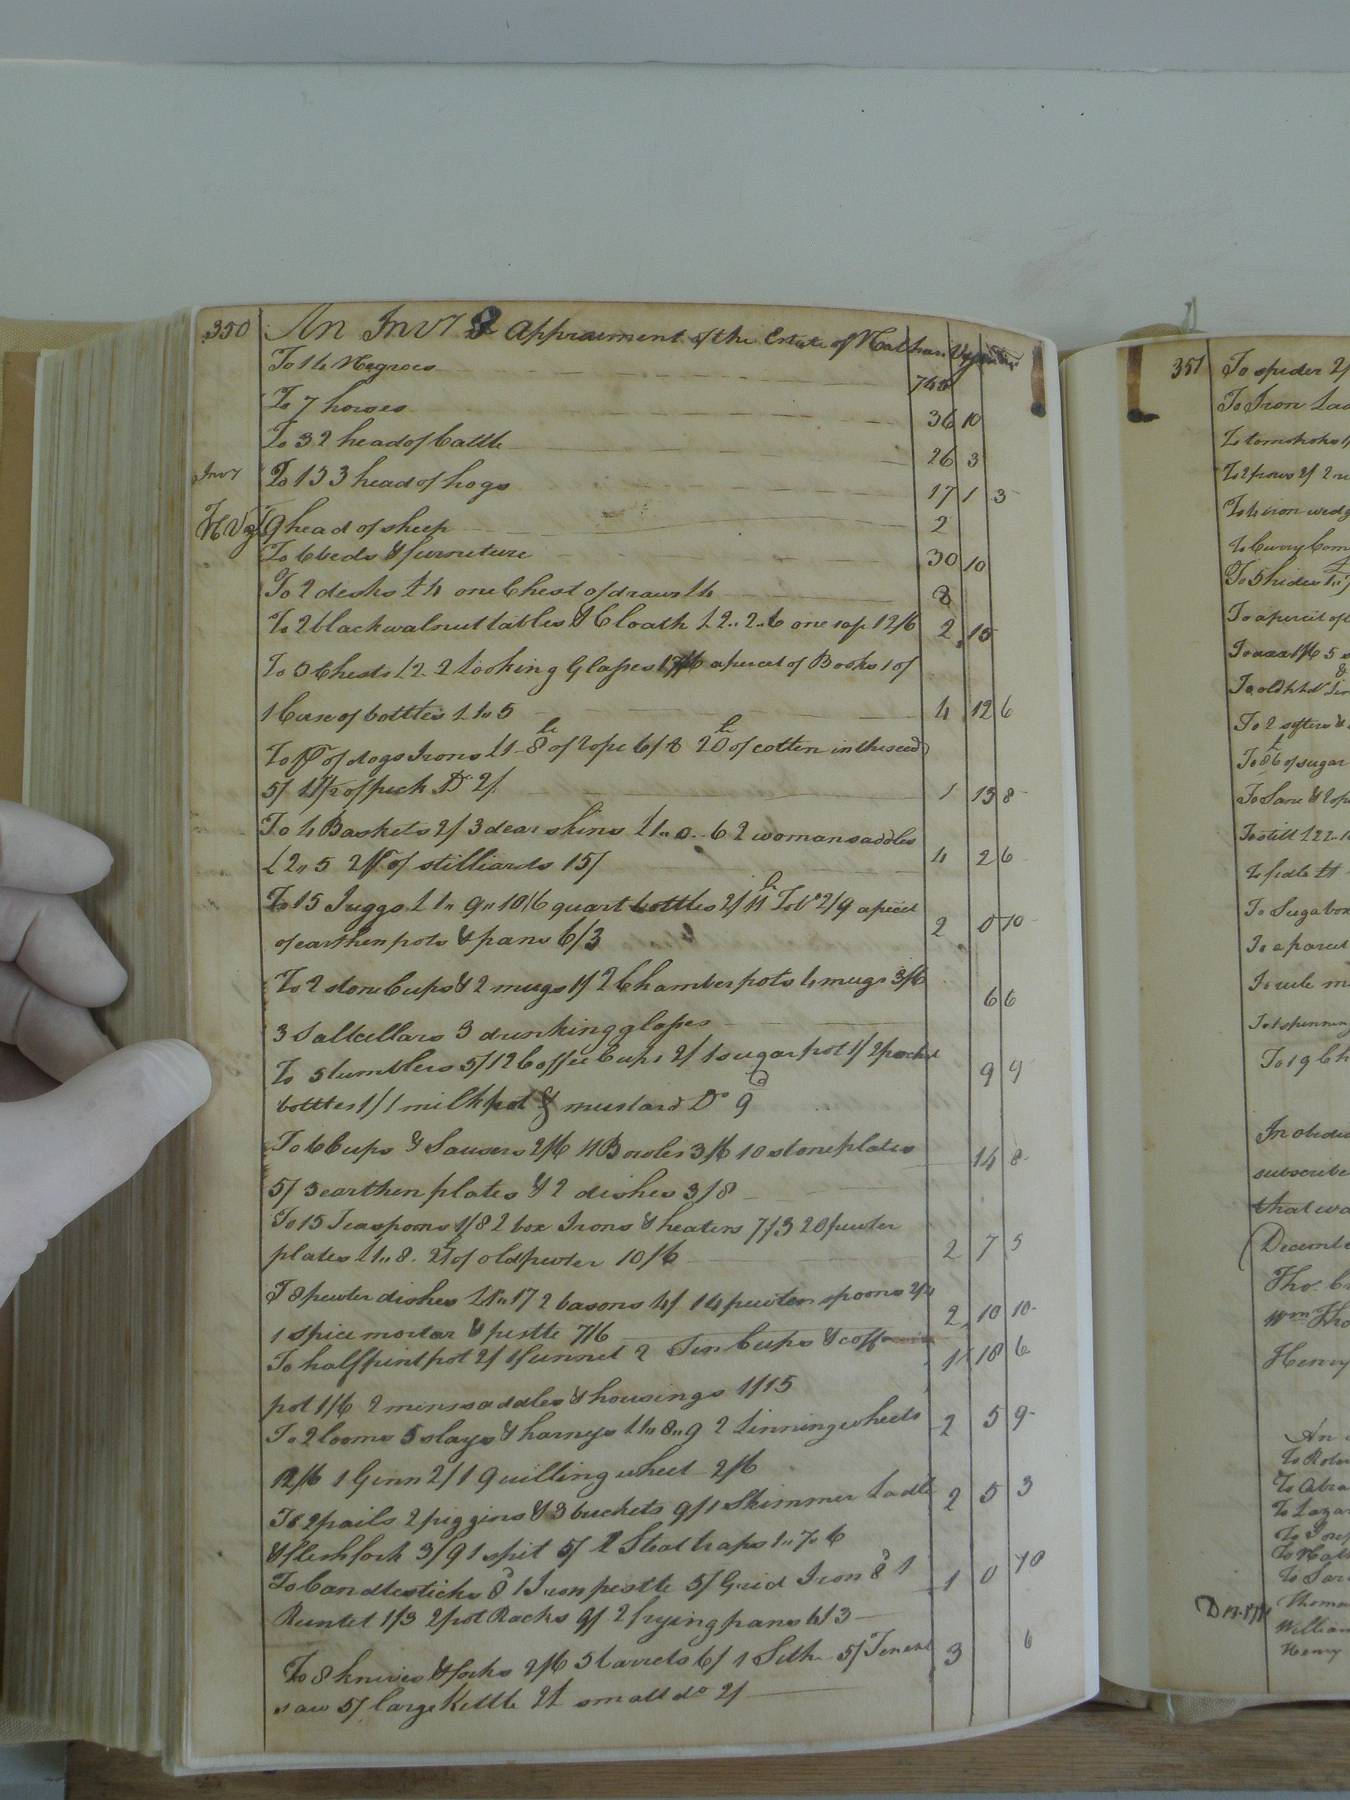 350
An Invy & Appraisment of the Estate of Nathan
To 14 Negroes 745
To 7 horses 36 10
To 32 head of Cattle 26 3
Invy
To 133 head of hogs 17 1 3
9 head of sheep 2
To 6 beds & furneture 30 10
To 2 desks £4 one Chest of draws £4 8
To 2 black walnut tables & Cloath £2..2..6 one 12/6 2 15
To 5 Chests £2. 2 Looking Glasses 17/6 a parcel of Books 1 of
1 Case of bottles £1..5 4 12 6
To pr of dogs Irons £1 8 lb of rope 6/8 20 lb of cotten in the seed
5/ of pick Do 2/ 1 13 8
To 4 Baskets 2/ 3 dear skins £1..0..6 2 woman saddles
£2..5 2 pr of stilliards 15/ 4 2 6
To 15 Juggs £1..9..10 6 quart bottles 2/ 11 lb Tobo 2/9 a parcel
of earthen pots & pans 6/3 2 0 10
To 2 stone Cups & 2 mugs 1/ 2 Chamber pots 4 mugs 3/6
3 Saltcellars 3 drinking glasses 6 6
To 5 tumblers 5/ 12 Coffee Cups 2/ 1 sugar pot 1/ 2 pocket
bottles 1/ 1 milk pot & mustard Do 9d 9 9
To 6 Cups & Sausers 2/6 11 Bowles 3/6 10 stone plates
5/ 3 earthen plates & 2 dishes 3/8 14 8
To 15 Teaspoons 1/8 2 box Irons & heaters 7/3 20 pewter
plates £1..8. of old pewter 10/6 2 7 5
T 8 pewter dishes £1..17 2 basons 4/ 14 pewter spoons
1 spice mortar & pestle 7/6 2 10 10
To half pint pot 2/ 1 funnel 2 Tin Cups & coffee
pot 1/6 2 mens saddles & housings 1/15 1 18 6
To 2 looms 5 slays & harnys £1..8..9 2 Linning wheels
12/6 1 Ginn 2/ 1 Quilling wheel 2/6 2 5 9
To 2 pails 2 piggins & 3 buckets 9/ 1 Skimmer Ladle
& fleshfork 3/9 1 spit 5/ 2 Steal traps 1..7..6 2 5 3
To Candlesticks 8d 1 Iron pestle 5/ Grid Iron 8d 1
Runlet 1/3 2 pot Racks 9/ 2 frying pans 4/3 1 0 10
To 8 knives & forks 2/6 5 barrels 6/ 1 Sith 5/ Tenent
saw 5/ large Kettle 2£ small do 2/ 3 6
351
To spider 2/
To Iron
To tomohoks
To iron wedg
To Curry Com
To 5 hides
To a parcel of
To old
To 2 sifters &
To of sugar
To still £22..10
To fidle £1
To Sugabox
To a parcel
To 1 spinning
To 19 Ch
In obedi
subscribe
that wa
Decembe
Tho. C
Wm Tho
Henry
An
To Rober
To Abra
To Lazar
To Jos
To Nath
To Sar
Thomas
William
Henry